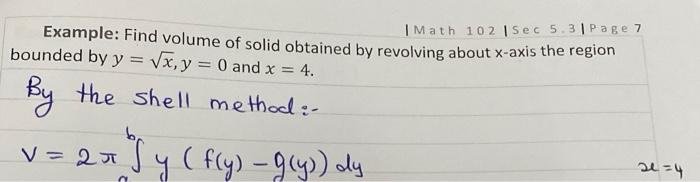 | Math 102 | Sec 5.3 | Page 7
Example: Find volume of solid obtained by revolving about x-axis the region
bounded by y = √x, y = 0 and x = 4.
By the shell method:-
V = 2π ∫ₐᵇ y (f(y) - g(y)) dy
x = 4